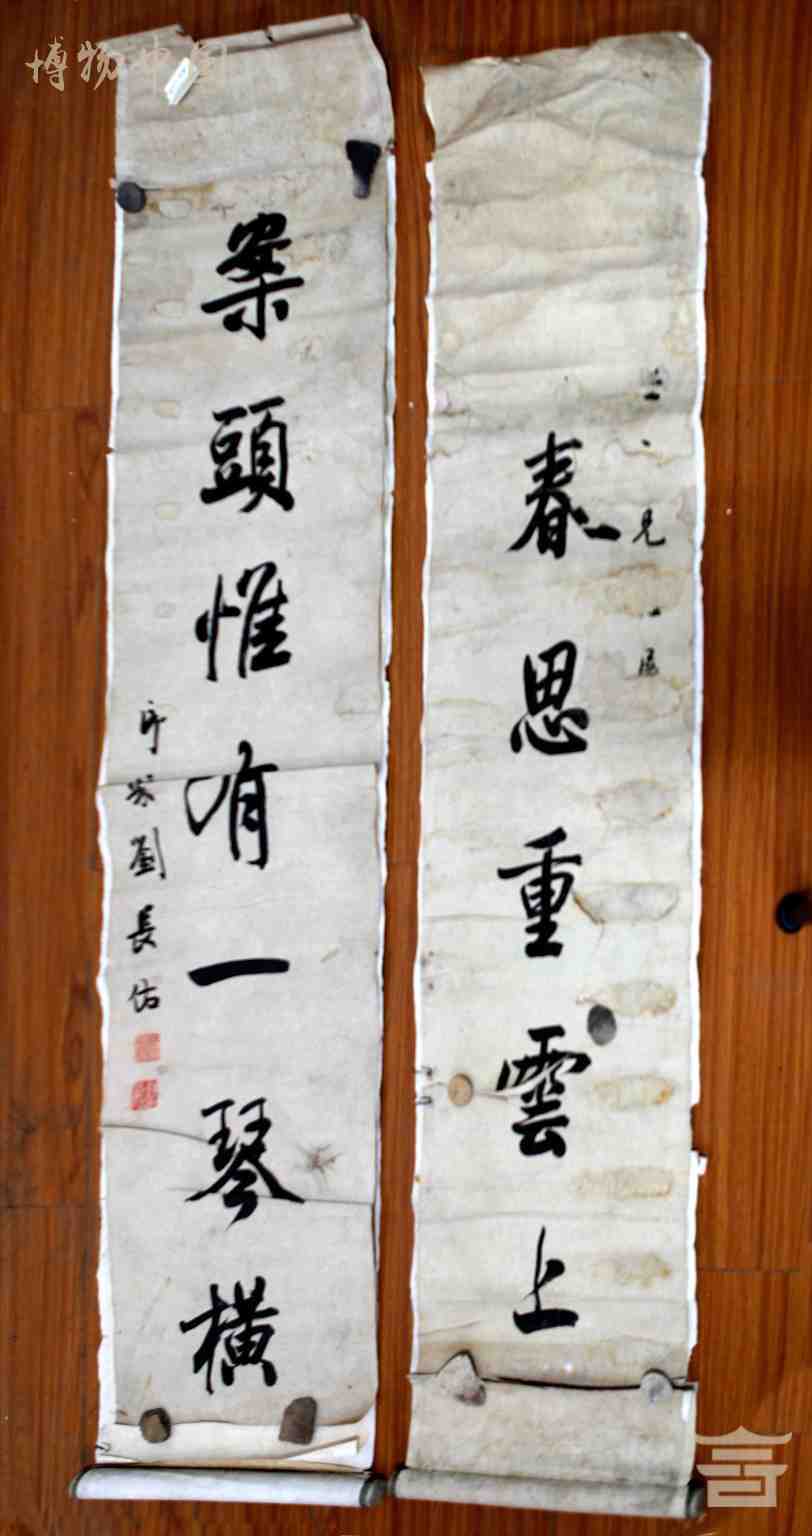 博物中国
春思重雲上
兄
案頭惟有一琴橫
劉長佑